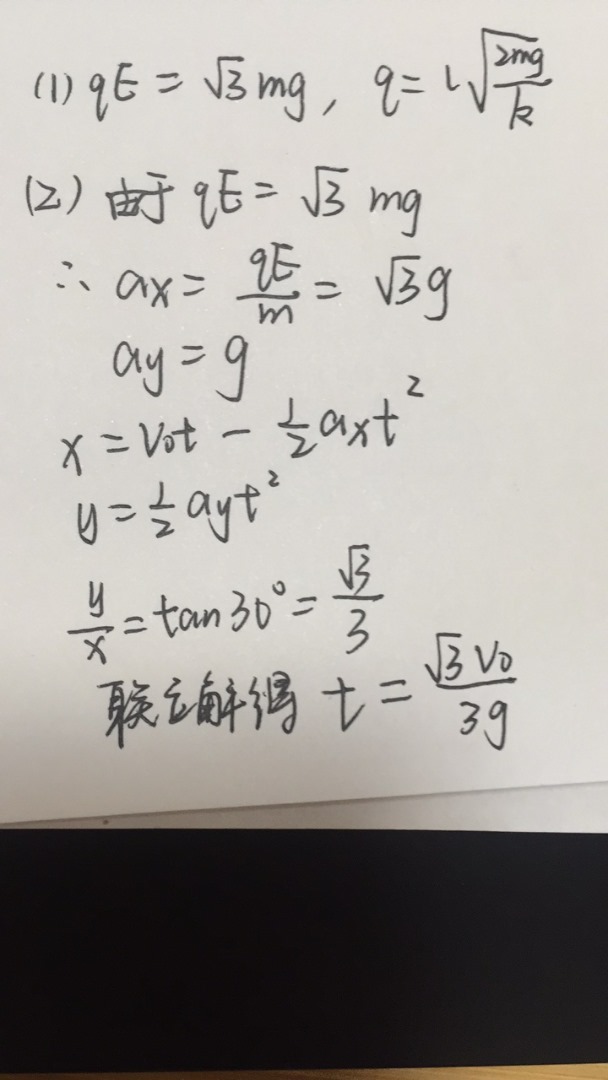 (1) qE = √3 mg, q = L√(2mg/k)
(2) 由于 qE = √3 mg
∴ ax = qE/m = √3g
ay = g
x = V₀t - 1/2 axt²
y = 1/2 ayt²
y/x = tan30° = √3/3
联立解得 t = √3V₀/3g